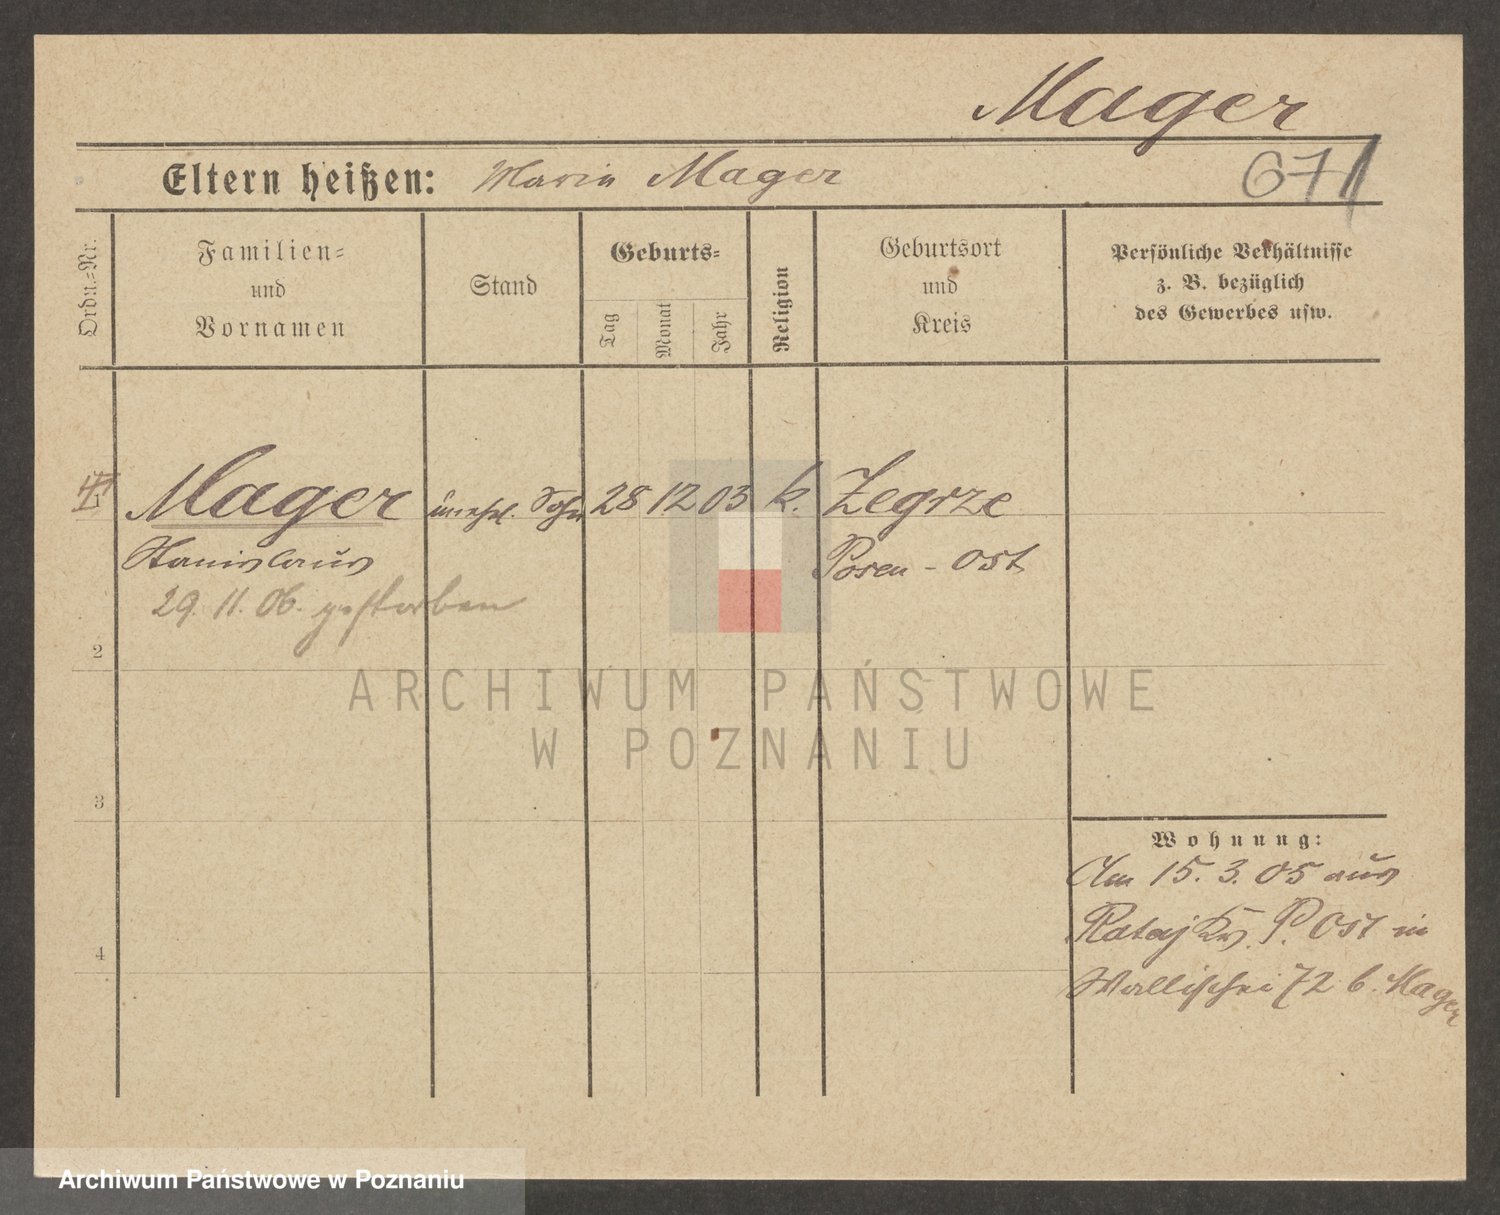 Mager
Eltern heißen: Maria Mager
671
Ordn.=Nr.
Familien=
und
Vornamen
Stand
Geburts=
Tag
Monat
Jahr
Religion
Geburtsort
und
Kreis
Persönliche Verhältnisse
z. B. bezüglich
des Gewerbes usw.
1 Mager unehel. Sohn 28 12 03 k. Zegrze
Stanislaus Posen - Ost
29. 11. 06. gestorben
2
ARCHIWUM PAŃSTWOWE
W POZNANIU
3
Wohnung:
Am 15. 3. 05 aus
Rataj Kr. P. Ost in
4
Wallischei 72 b. Mager
Archiwum Państwowe w Poznaniu